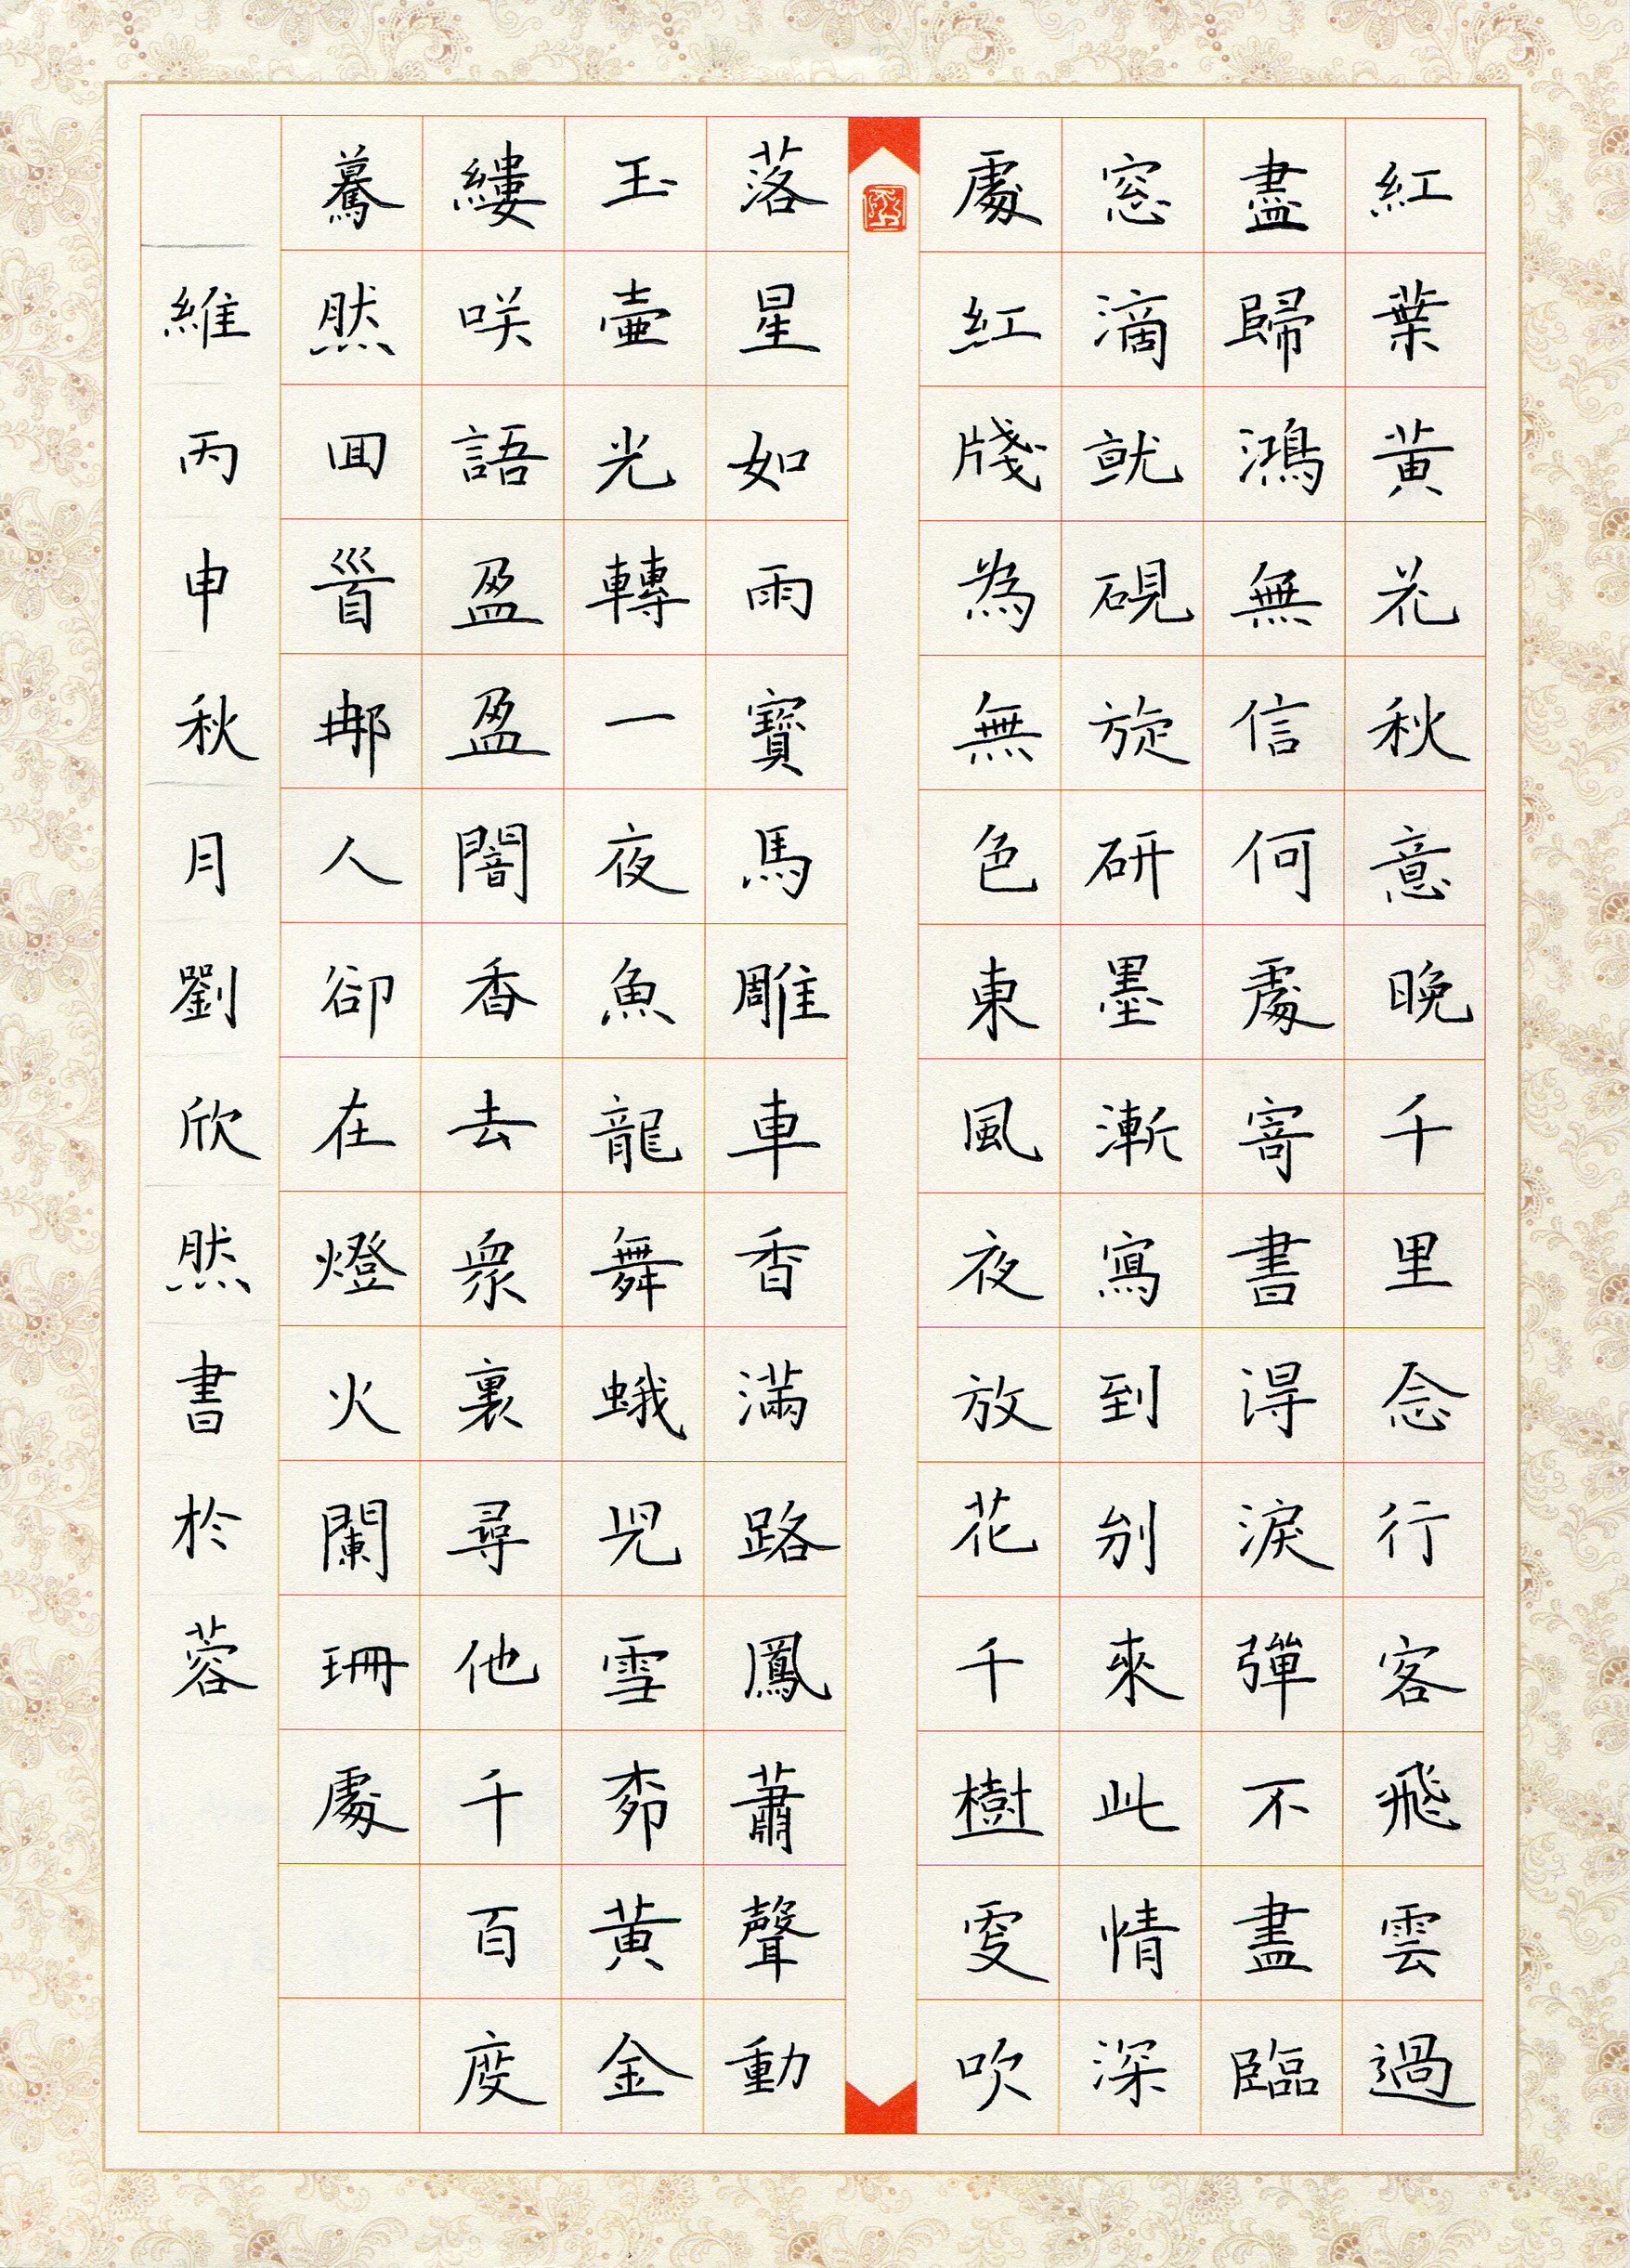 紅葉黃花秋意晚千里念行客飛雲過
盡歸鴻無信何處寄書得淚彈不盡臨
窓滴就硯旋研墨漸寫到別來此情深
處紅牋為無色東風夜放花千樹更吹
落星如雨寶馬雕車香滿路鳳簫聲動
玉壺光轉一夜魚龍舞蛾兒雪柳黃金
縷咲語盈盈闇香去衆裏尋他千百度
驀然回首那人卻在燈火闌珊處
維丙申秋月劉欣然書於蓉